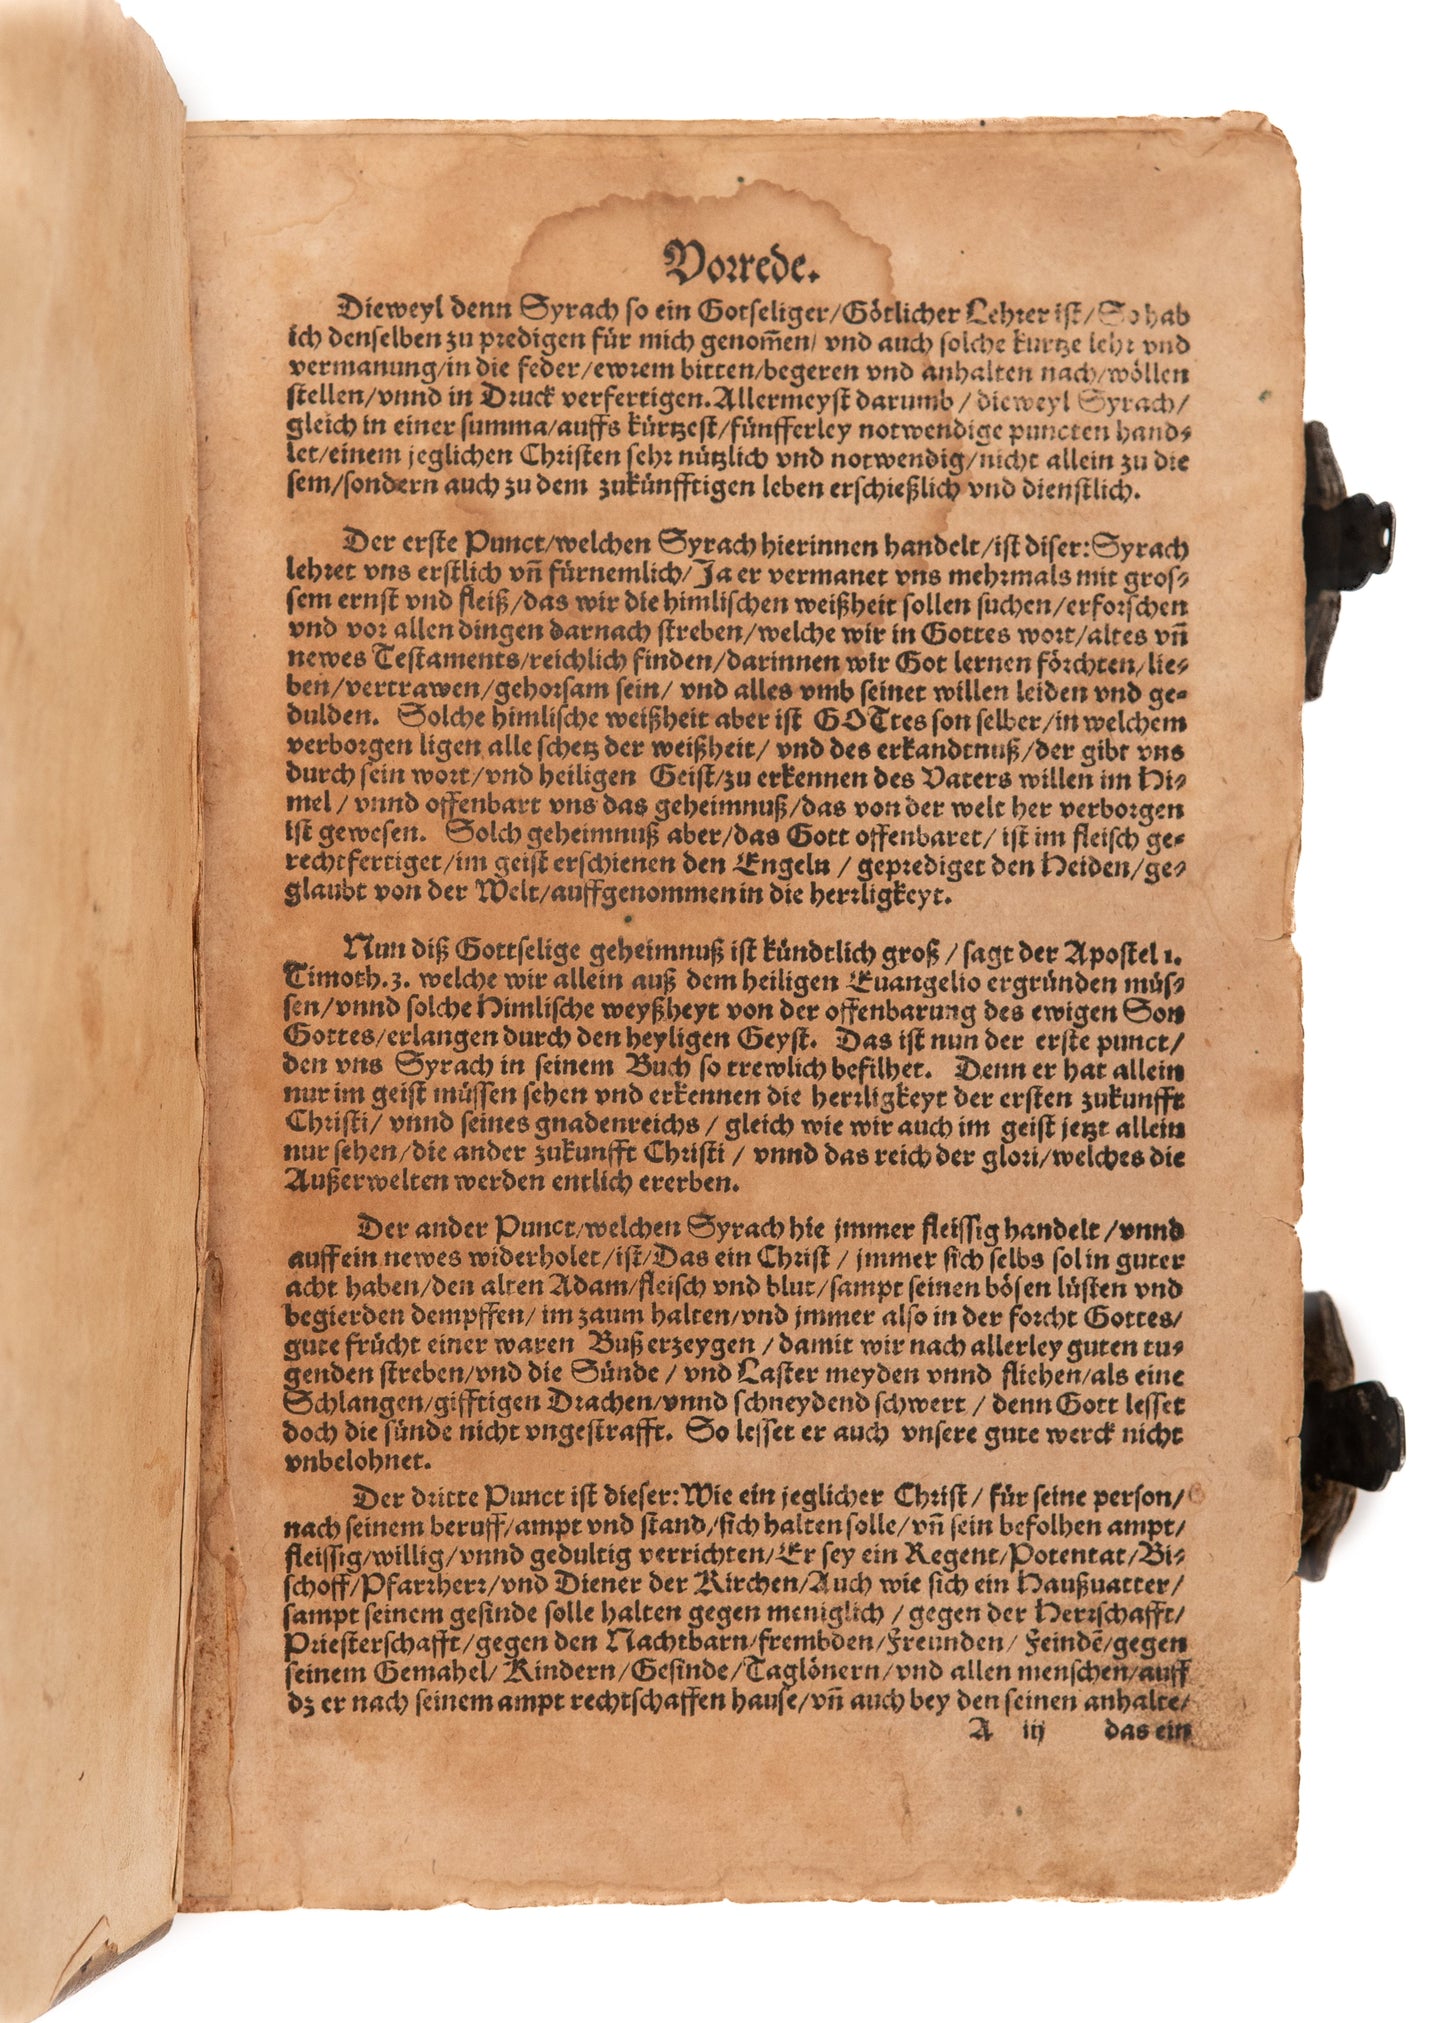 Vorrede.
Dieweyl denn Syrach so ein Gotseliger/Götlicher Lehrer ist/So hab
ich denselben zu predigen für mich genom̃en/ vnd auch solche kurtze lehr vnd
vermanung/in die feder/ewrem bitten/begeren vnd anhalten nach/wöllen
stellen/vnnd in Druck verfertigen.Allermeyst darumb / dieweyl Syrach/
gleich in einer summa/auffs kürtzest/fünfferley notwendige puncten hand⸗
let/einem jeglichen Christen sehr nützlich vnd notwendig/nicht allein zu die
sem/sondern auch zu dem zukünfftigen leben erschießlich vnd dienstlich.
Der erste Punct/welchen Syrach hierinnen handelt/ist diser:Syrach
lehret vns erstlich vñ fürnemlich/Ja er vermanet vns mehrmals mit gros⸗
sem ernst vnd fleiß/das wir die himlischen weißheit sollen suchen/erforschen
vnd vor allen dingen darnach streben/welche wir in Gottes wort/altes vñ
newes Testaments/reichlich finden/darinnen wir Got lernen förchten/lie⸗
ben/vertrawen/gehorsam sein/ vnd alles vmb seinet willen leiden vnd ge⸗
dulden. Solche himlische weißheit aber ist GOTtes son selber/in welchem
verborgen ligen alle schetz der weißheit/ vnd des erkandtnuß/der gibt vns
durch sein wort/vnd heiligen Geist/zu erkennen des Vaters willen im Hi⸗
mel / vnnd offenbart vns das geheimnuß/das von der welt her verborgen
ist gewesen. Solch geheimnuß aber/das Gott offenbaret/ ist im fleisch ge⸗
rechtfertiget/im geist erschienen den Engeln / geprediget den Heiden/ge⸗
glaubt von der Welt/auffgenommen in die herrligkeyt.
Nun diß Gottselige geheimnuß ist kündtlich groß / sagt der Apostel 1.
Timoth.3. welche wir allein auß dem heiligen Euangelio ergründen müs⸗
sen/vnnd solche Himlische weyßheyt von der offenbarung des ewigen Son
Gottes/erlangen durch den heyligen Geyst. Das ist nun der erste punct/
den vns Syrach in seinem Buch so trewlich befilhet. Denn er hat allein
nur im geist müssen sehen vnd erkennen die herrligkeyt der ersten zukunfft
Christi/ vnnd seines gnadenreichs / gleich wie wir auch im geist jetzt allein
nur sehen/die ander zukunfft Christi / vnnd das reich der glori/welches die
Außerwelten werden entlich ererben.
Der ander Punct/welchen Syrach hie jmmer fleissig handelt /vnnd
auff ein newes widerholet/ist/Das ein Christ / jmmer sich selbs sol in guter
acht haben/den alten Adam/fleisch vnd blut/sampt seinen bösen lüsten vnd
begierden dempffen/ im zaum halten/vnd jmmer also in der forcht Gottes/
gute frücht einer waren Buß erzeygen / damit wir nach allerley guten tu⸗
genden streben/vnd die Sünde / vnd Laster meyden vnnd fliehen/als eine
Schlangen/gifftigen Drachen/vnnd schneydend schwert / denn Gott lesset
doch die sünde nicht vngestrafft. So lesset er auch vnsere gute werck nicht
vnbelohnet.
Der dritte Punct ist dieser:Wie ein jeglicher Christ / für seine person/
nach seinem beruff/ampt vnd stand/sich halten solle/vñ sein befolhen ampt/
fleissig/willig/vnnd gedultig verrichten/Er sey ein Regent/Potentat/Bi⸗
schoff/Pfarrherr/vnd Diener der Kirchen/Auch wie sich ein Haußuatter/
sampt seinem gesinde solle halten gegen meniglich / gegen der Herrschafft/
Priesterschafft/gegen den Nachtbarn/frembden/Freunden/ Feindẽ/gegen
seinem Gemahel/ Kindern/Gesinde/Taglönern/vnd allen menschen/auff
dz er nach seinem ampt rechtschaffen hause/vñ auch bey den seinen anhalte/
A iij das ein